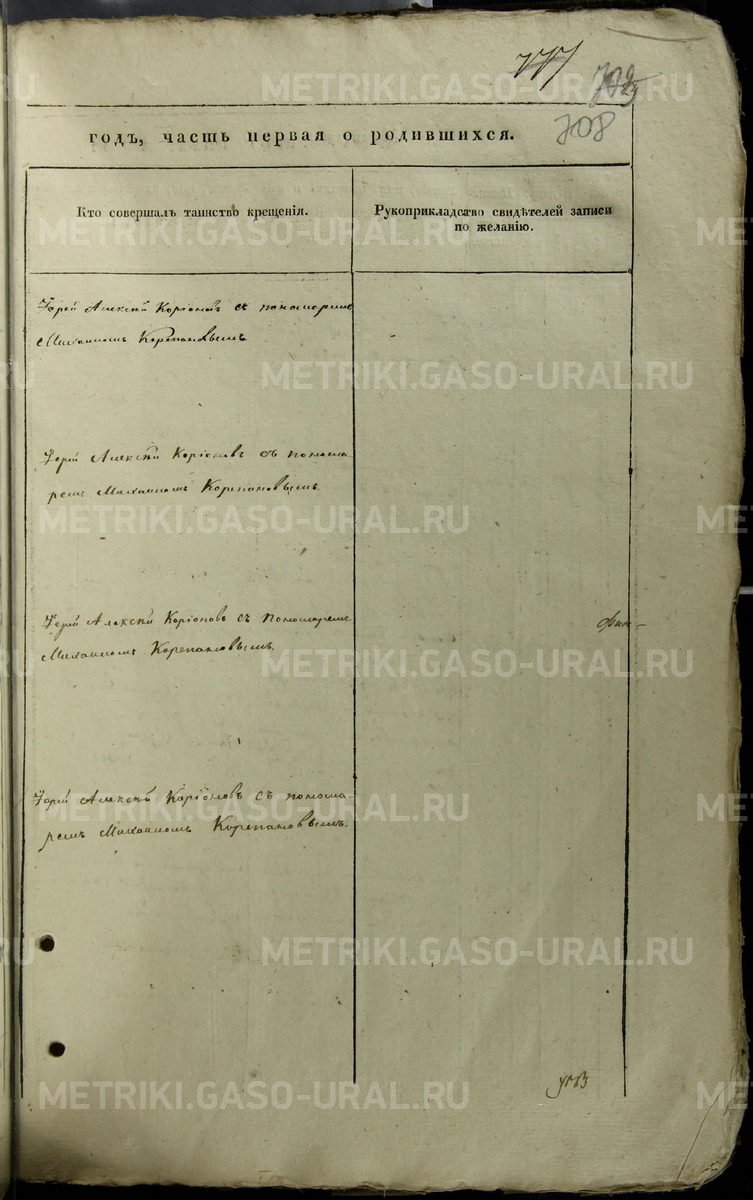 777
708
годъ, часть первая о родившихся.
Кто совершалъ таинство крещенія.
Рукоприкладство свидѣтелей записи
по желанію.
Іерей Алексѣй Коріоновъ съ пономоремъ
Михаиломъ Корепановымъ
Іерей Алексѣй Коріоновъ съ понома-
ремъ Михаиломъ Корепановымъ.
Іерей Алексѣй Коріоновъ съ пономоремъ
Михаиломъ Корепановымъ.
Іерей Алексѣй Коріоновъ съ понома-
ремъ Михаиломъ Корепановымъ.
METRIKI.GASO-URAL.RU